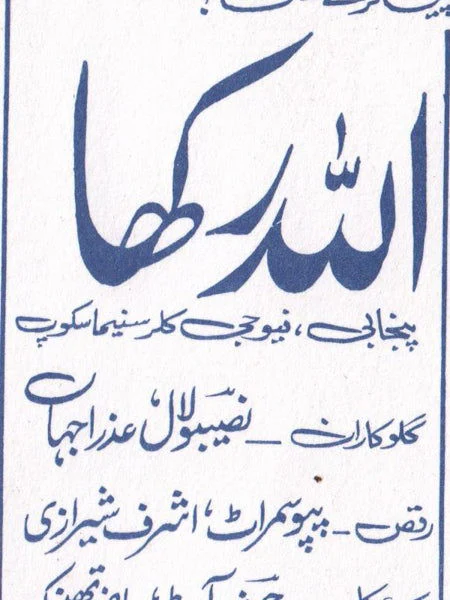 اللہ رکھا
پنجابی، فیوجی کلر سنیما سکوپ
گلوکاران ــ نصیبو لال، عذرا جہاں
رقص ــ پپو سمراٹ، اشرف شیرازی